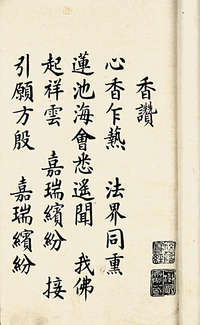 香讚
心香乍熱　法界同熏
蓮池海會悉遙聞　我佛
起祥雲　嘉瑞繽紛　接
引願方殷　嘉瑞繽紛